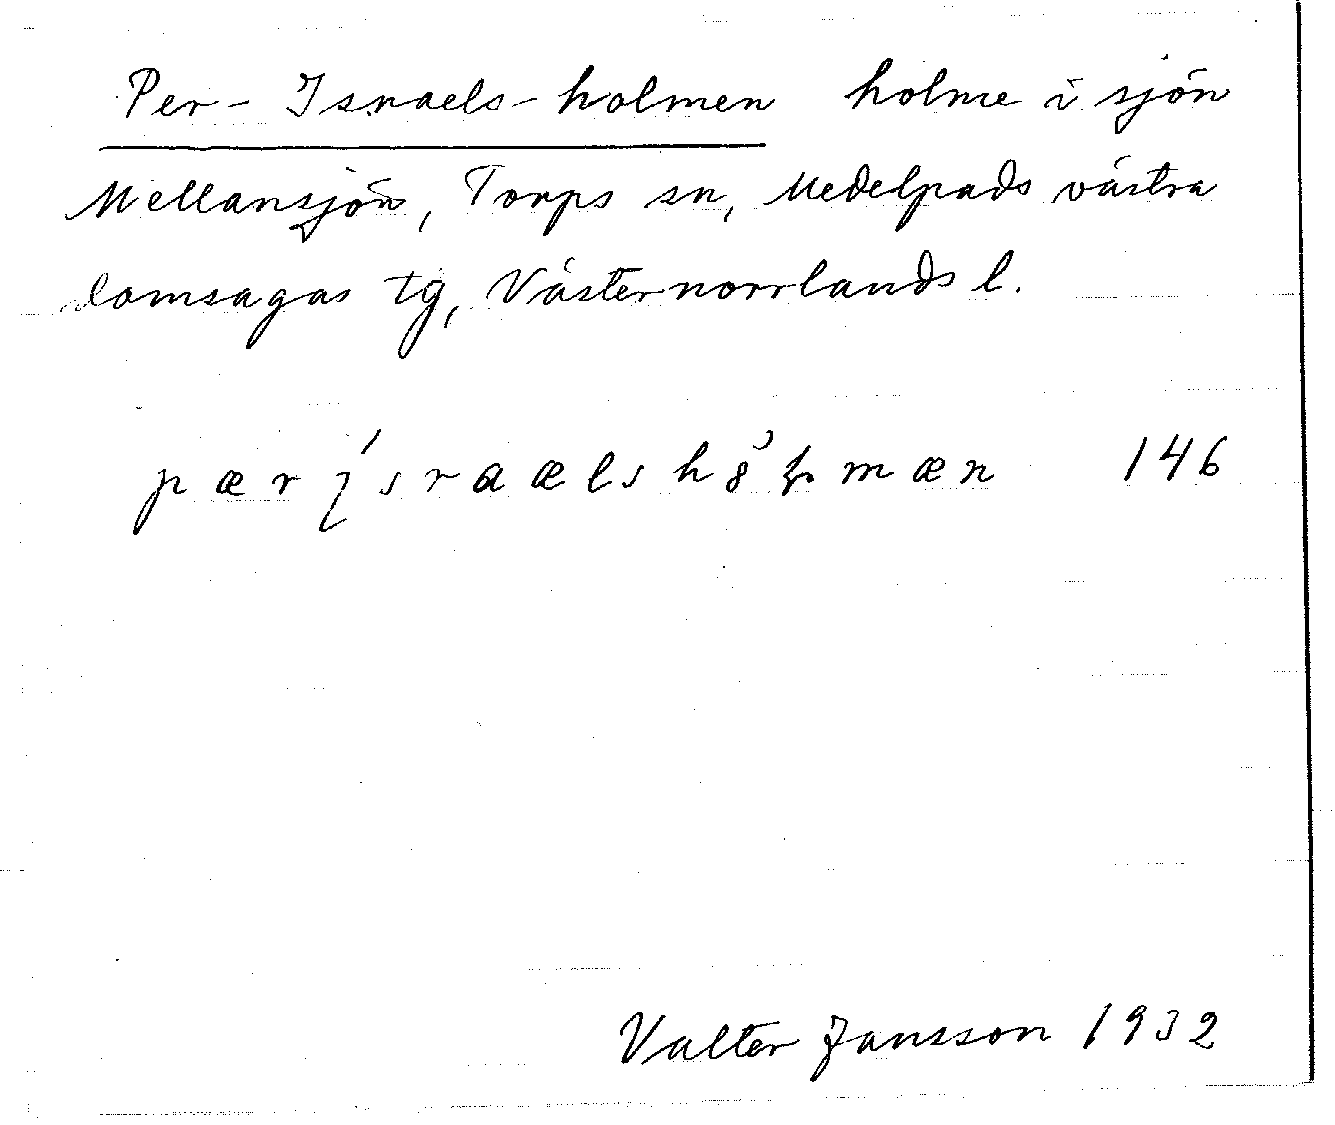 Per-Israels-holmen holme i sjön
Mellansjön, Torps sn, Medelpads västra
domsagas tg, Västernorrlands l.
146
Valter Jansson 1932